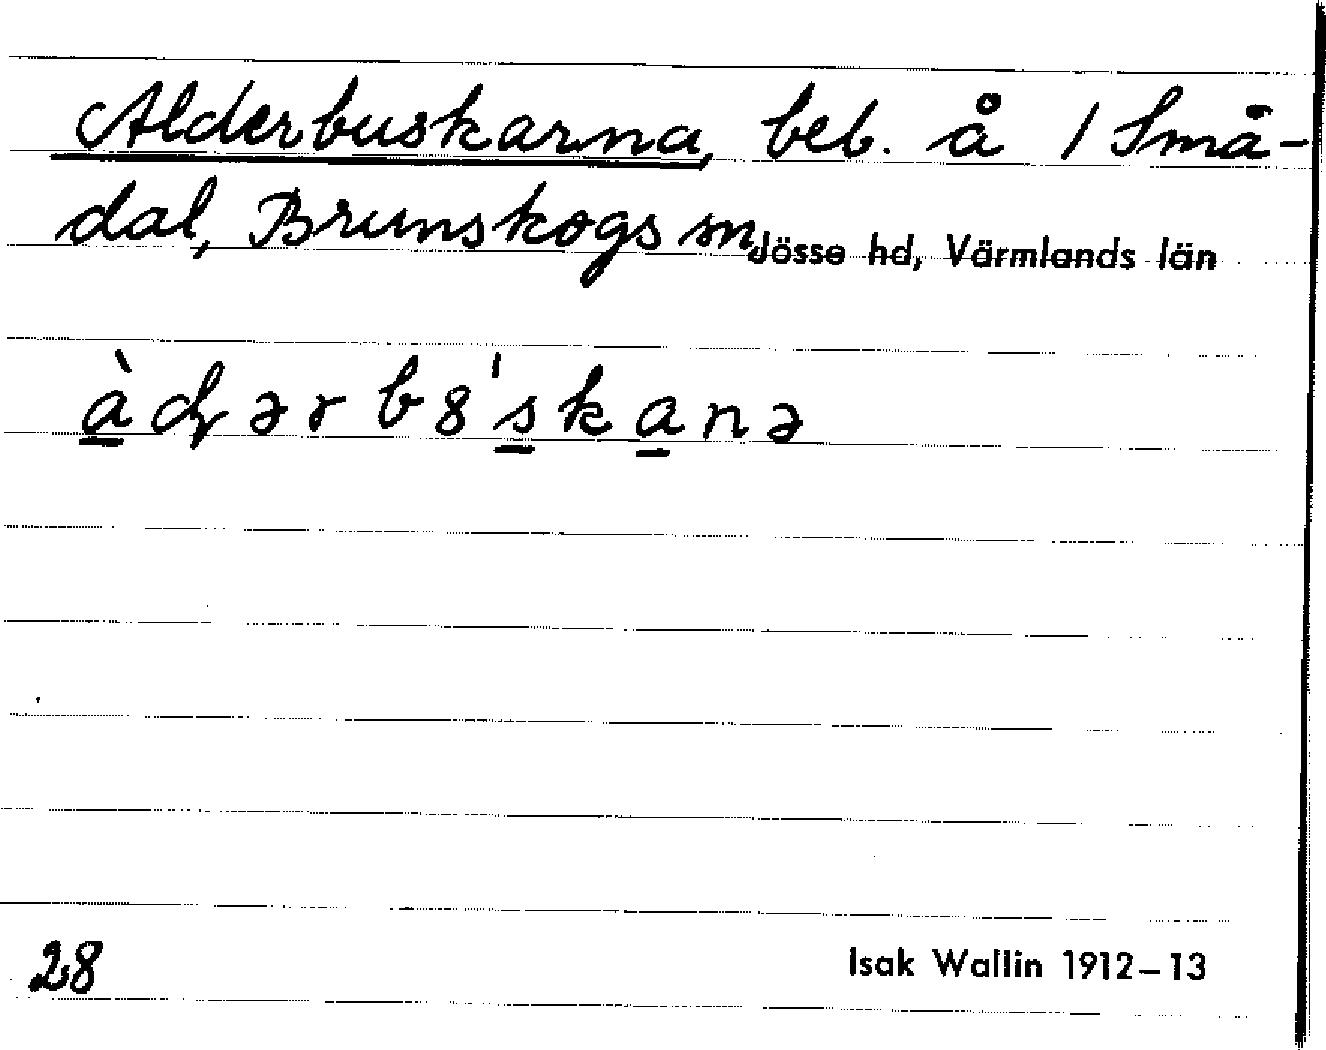 Alderbuskarna, beb. å 1 Små-
dal, Brunskogs sn, Jösse hd, Värmlands län
àɖərb8'skanə
28
Isak Wallin 1912–13